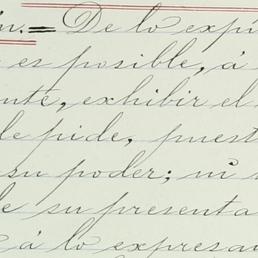 ón.= De lo expi
es posible, á
nte, exhibir el
le pide, puest
su poder; ni
de su presenta
á lo expresa